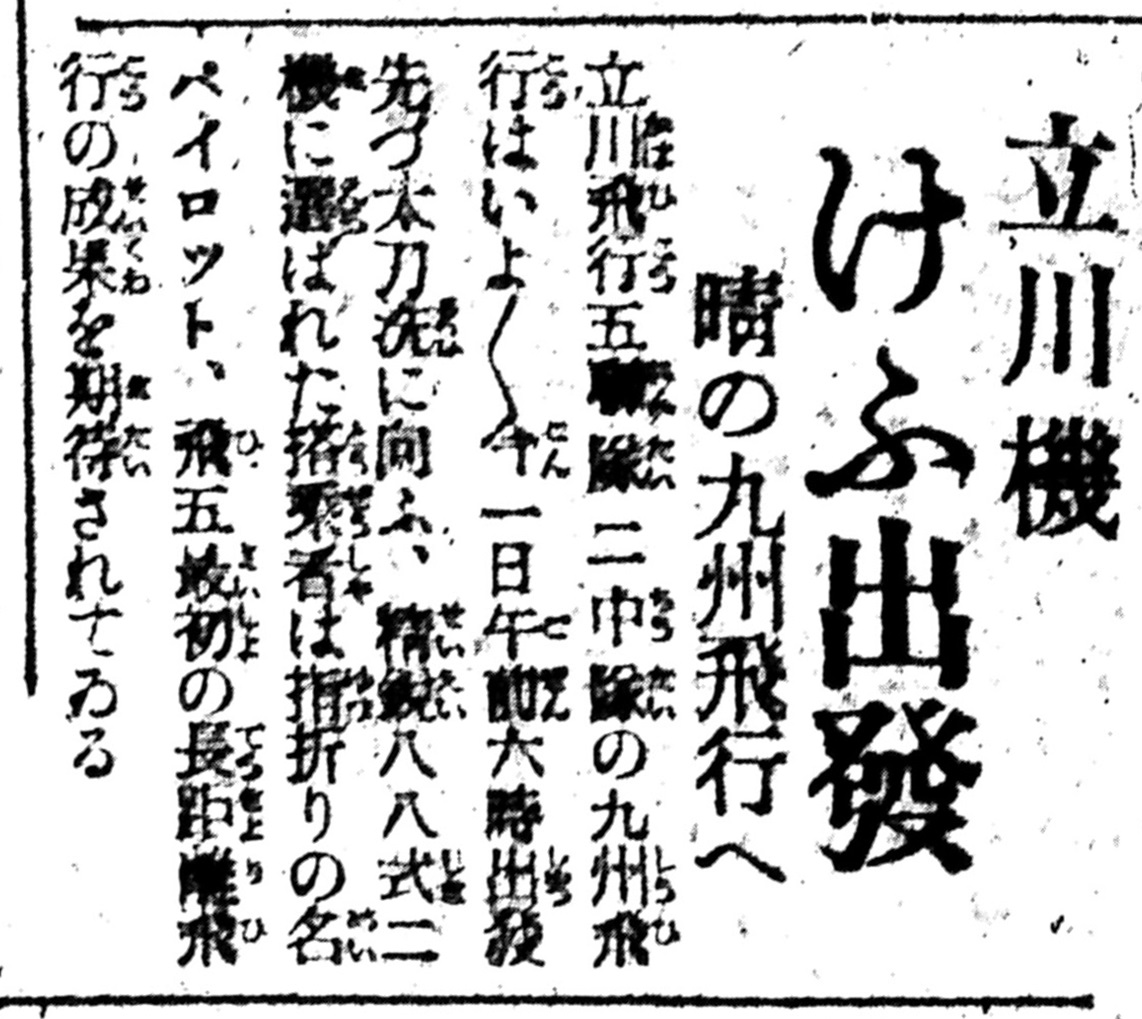 立川機
けふ出發
晴の九州飛行へ
立川飛行五聯隊二中隊の九州飛
行はいよ〱廿一日午前六時出發
先づ太刀洗に向ふ、精鋭八八式二
機に選ばれた搭乘者は指折りの名
ペイロット、飛五最初の長距離飛
行の成果を期待されてゐる